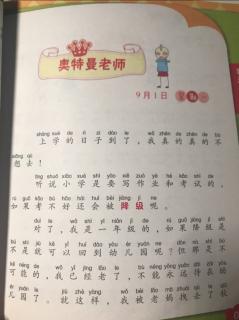 奥特曼老师
9月1日 星期一
shàng xué de rì zi dào le wǒ zhēn de zhēn de bù
上学的日子到了，我真的真的不
xiǎng qù
想去！
tīng shuō xiǎo xué shì yào xiě zuò yè hé kǎo shì de
听说小学是要写作业和考试的，
rú guǒ kǎo bù hǎo hái huì bèi jiàng jí ne
如果考不好还会被降级呢。
duì le wǒ shì yì nián jí de rú guǒ jiàng jí shì
对了，我是一年级的，如果降级是
bú shì jiù kě yǐ huí dào yòu ér yuán ne dàn nà shì bù
不是就可以回到幼儿园呢？但那是不
kě néng de wǒ yǐ jīng lǎo le bù néng yǒng yuǎn dāi zài yòu
可能的，我已经老了，不能永远待在幼
ér yuán le jiù zhè yàng wǒ bèi lǎo mā
儿园了。就这样，我被老妈拽去了